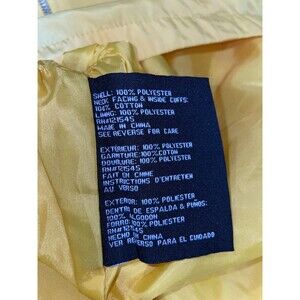 SHELL: 100% POLYESTER
NECK FACING & INSIDE CUFFS:
100% COTTON
LINING: 100% POLYESTER
RN#121545
MADE IN CHINA
SEE REVERSE FOR CARE
EXTÉRIEUR: 100% POLYESTER
GARNITURE: 100% COTON
DOUBLURE: 100% POLYESTER
RN#121545
FAIT EN CHINE
INSTRUCTIONS D'ENTRETIEN
AU VERSO
EXTERIOR: 100% POLIESTER
DENTRO DE ESPALDA & PUÑOS:
100% ALGODON
FORRO: 100% POLIESTER
RN#121545
HECHO EN CHINA
VER REVERSO PARA EL CUIDADO